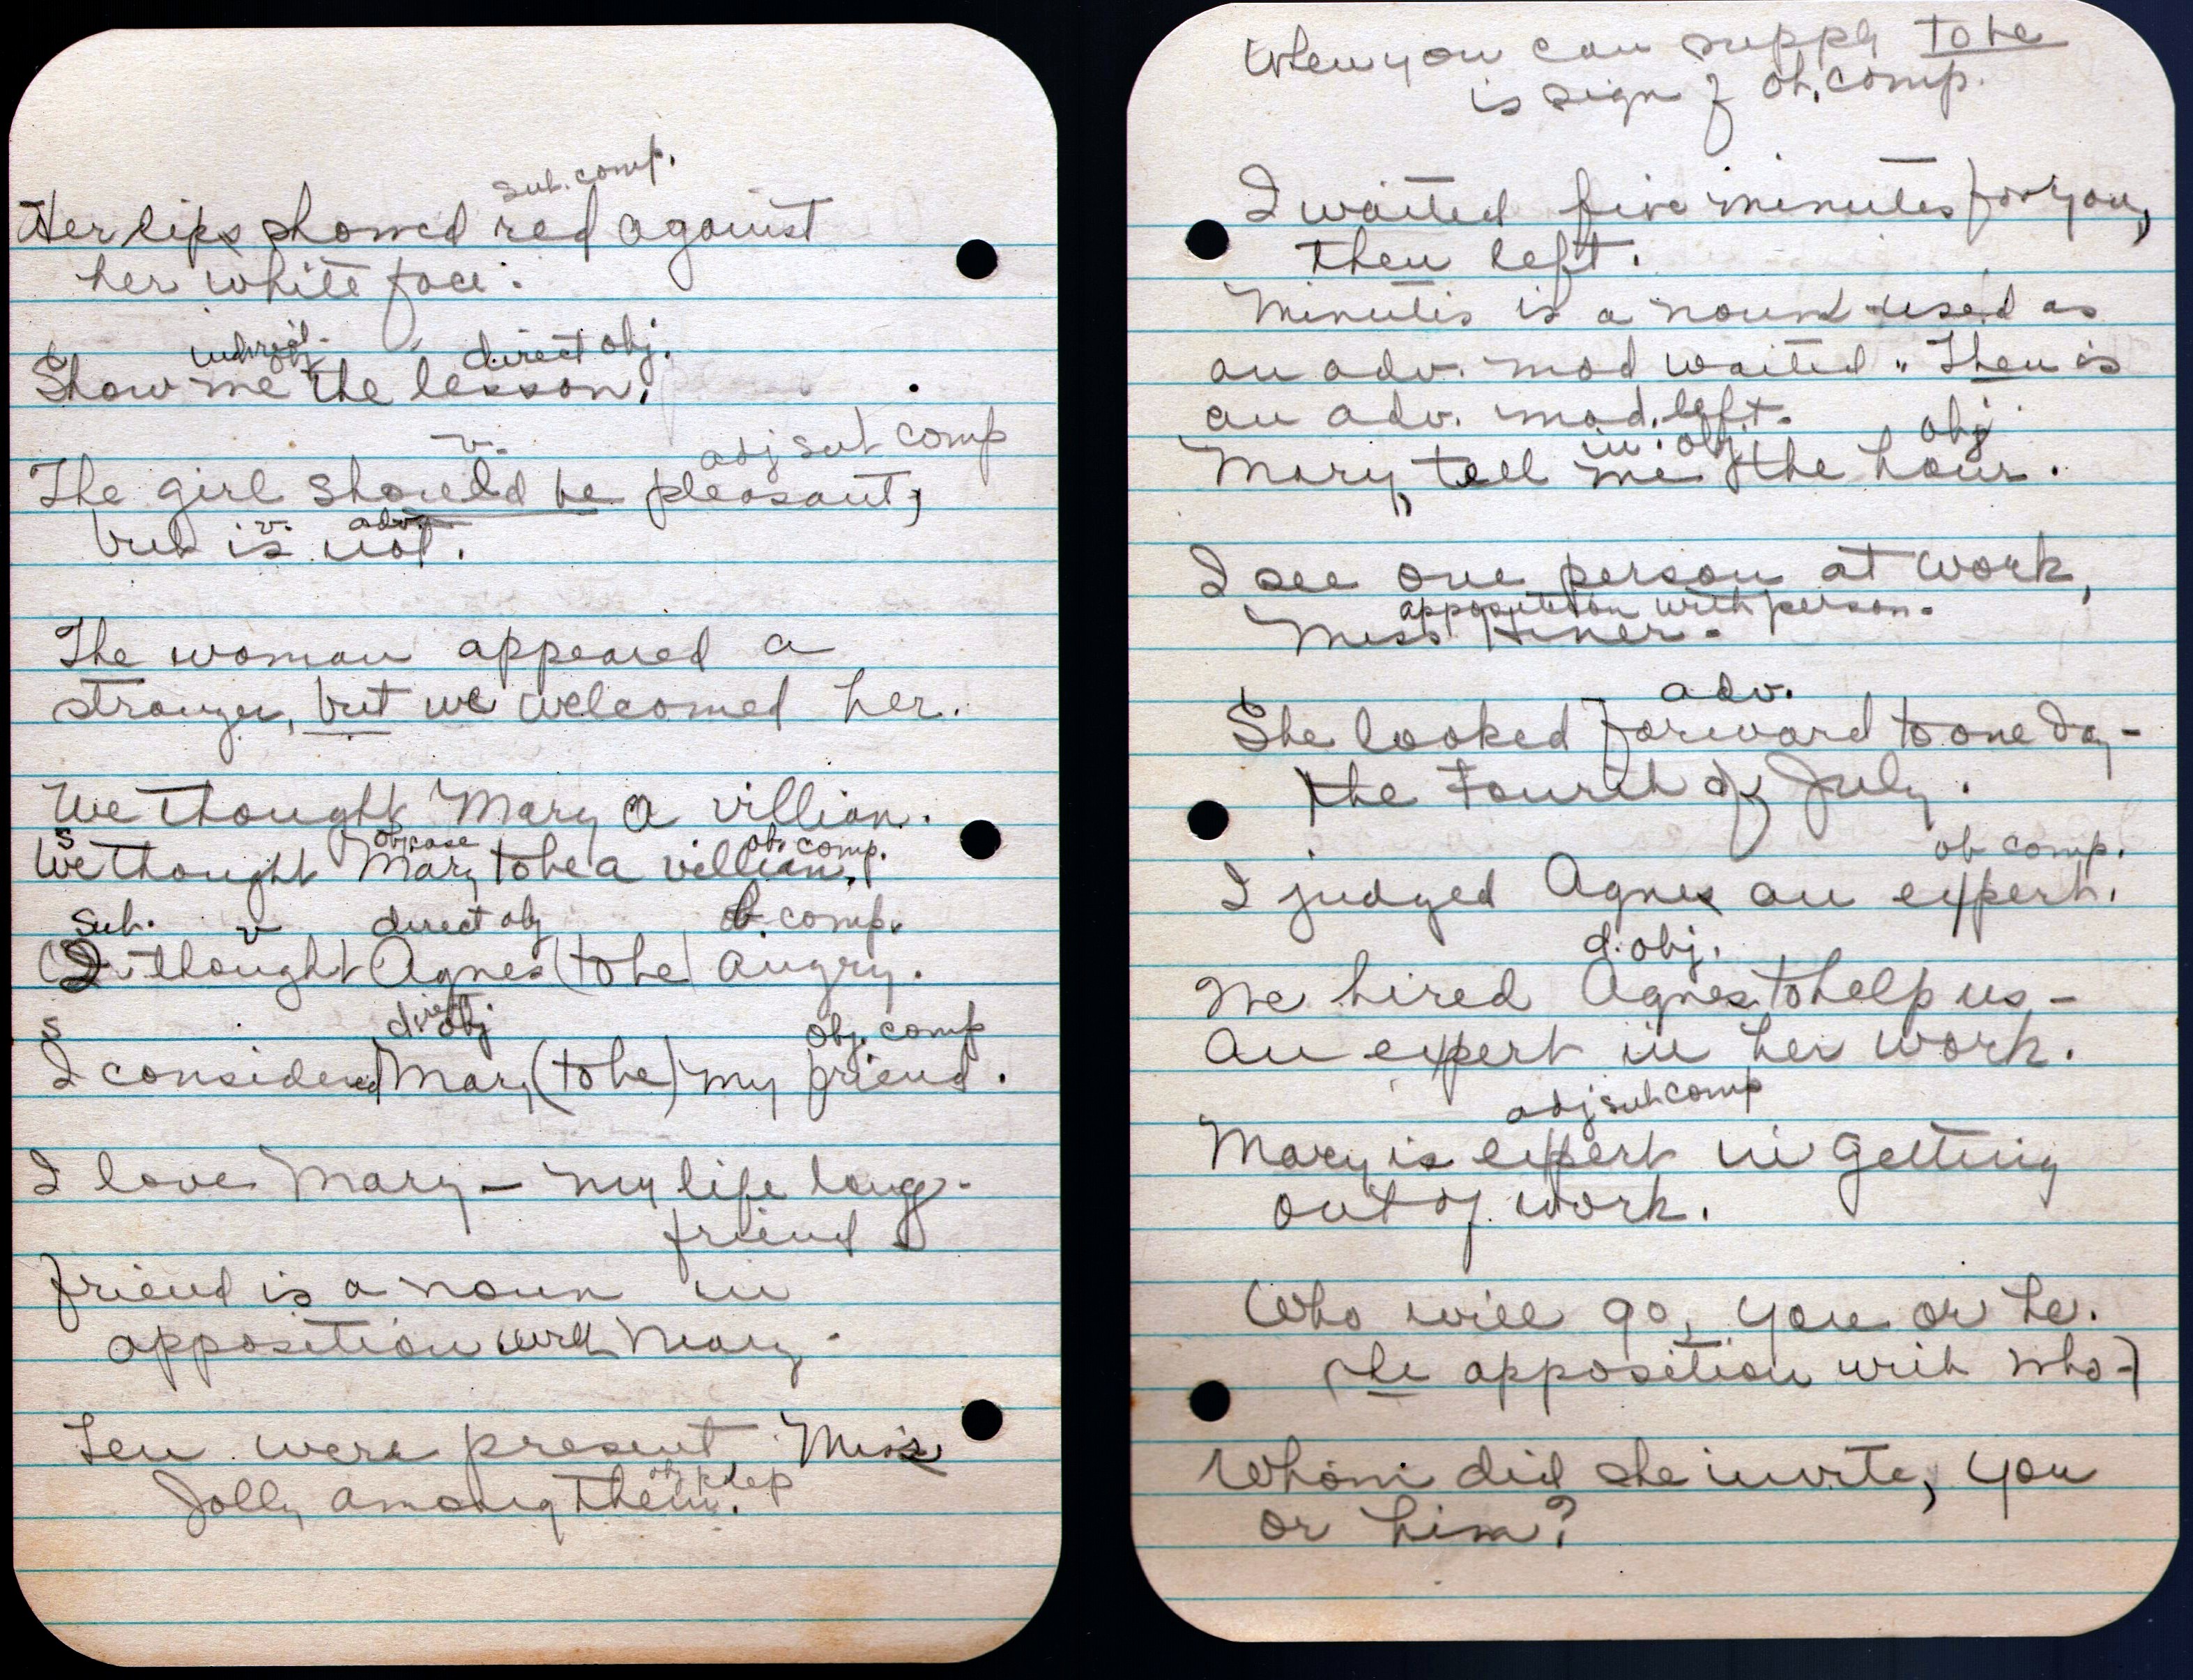 sub. comp.
Her lips showed red against
her white face.
indirect obj. direct obj.
Show me the lesson.
v. adj sub comp
The girl should be pleasant,
v. adv.
but is not.
The woman appeared a
stranger, but we welcomed her.
We thought Mary a villian.
s obj case ob. comp.
We thought Mary to be a villian.
Sub. v direct obj ob. comp.
I thought Agnes (to be) angry.
s direct obj obj. comp
I considered Mary (to be) my friend.
I love Mary – my life long
friend
friend is a noun in
apposition with Mary.
Ten were present Miss
Jolly among them.
When you can supply to be
is sign of ob. comp.
I waited five minutes for you,
then left.
Minutes is a noun used as
an adv. mod waited. Then is
an adv. mod. left.
in. obj. obj
Mary, tell me the hour.
I see one person at work,
apposition with person.
Miss Hiner.
adv.
She looked forward to one day –
the Fourth of July.
ob comp.
I judged Agnes an expert.
d. obj.
We hired Agnes to help us –
an expert in her work.
adj sub comp
Mary is expert in getting
out of work.
Who will go, you or he.
(he apposition with who)
Whom did she invite, you
or him?